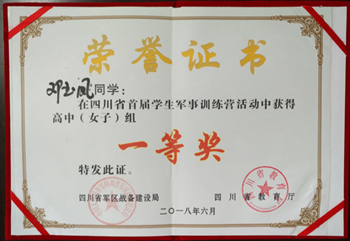 荣誉证书
邓玉凤同学：
在四川省首届学生军事训练营活动中获得
高中（女子）组
一等奖
特发此证。
四川省军区战备建设局 四川省教育厅
二〇一八年六月